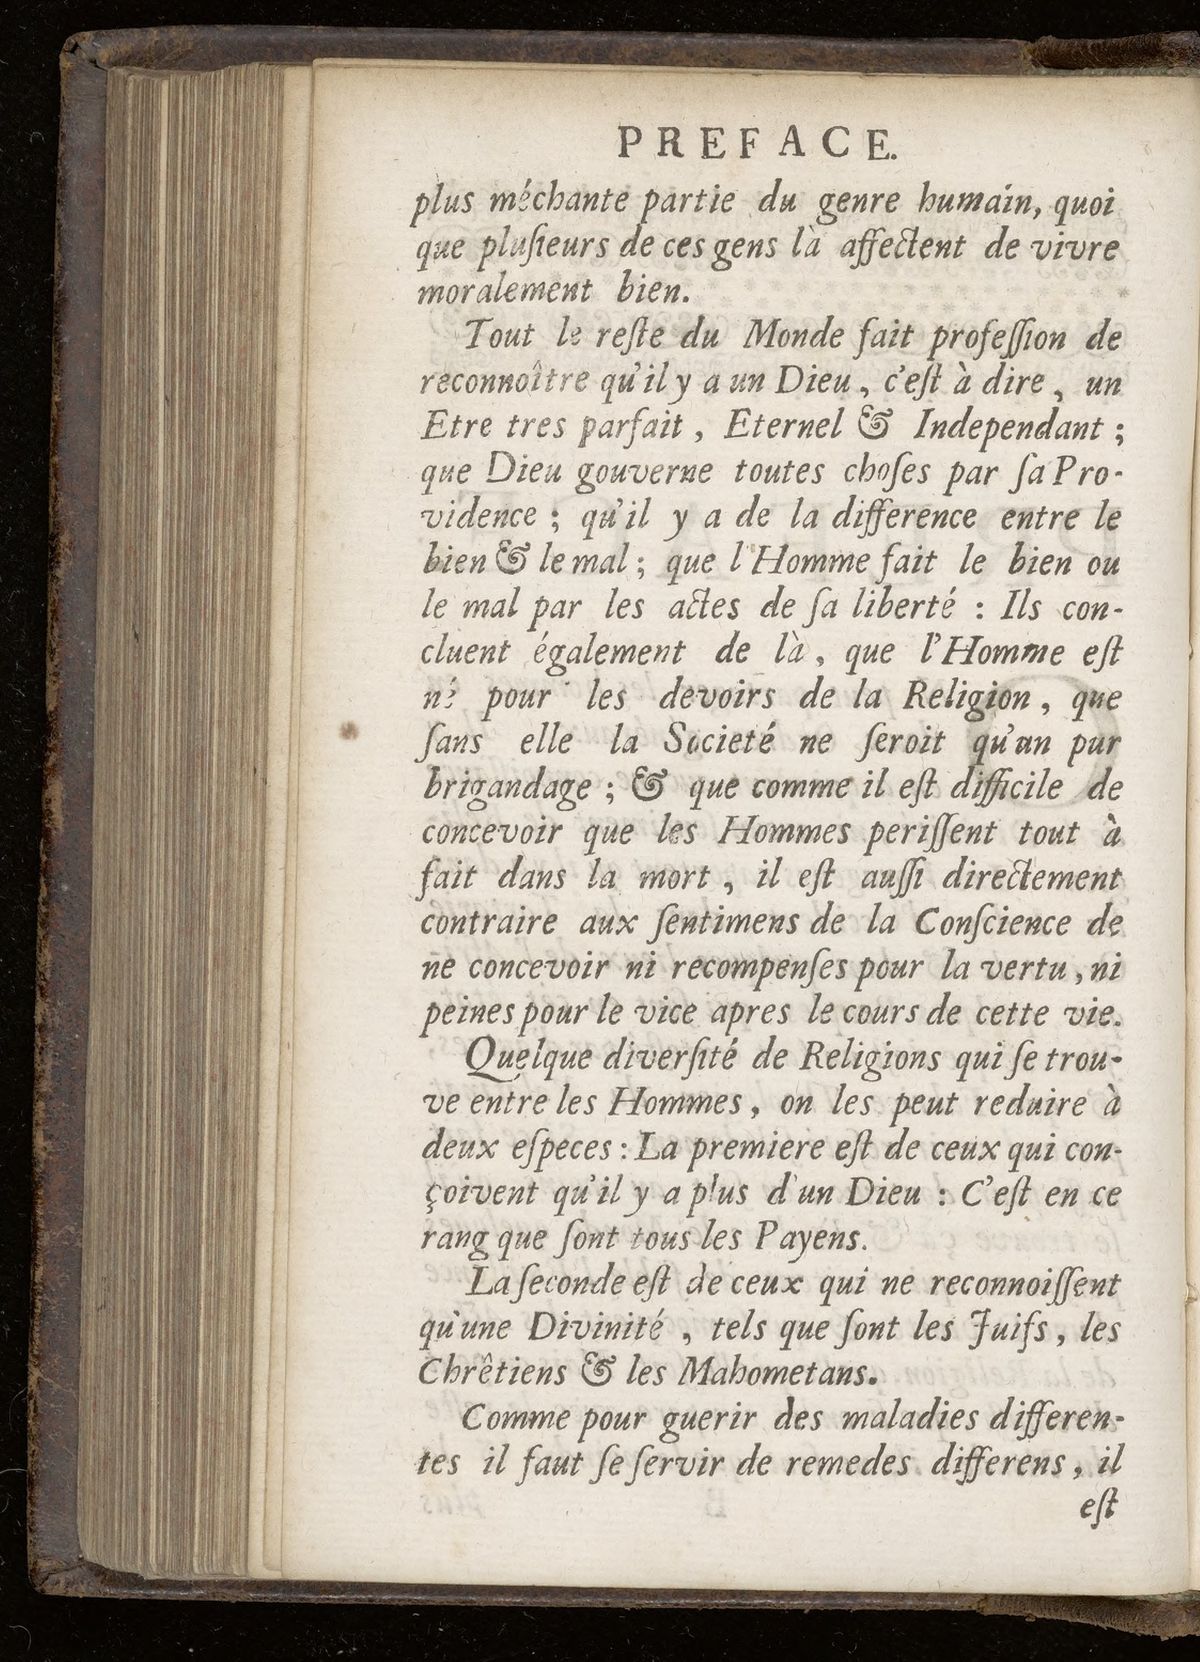 PREFACE.
plus méchante partie du genre humain, quoi
que pluſieurs de ces gens là affectent de vivre
moralement bien.
Tout le reſte du Monde fait profeſſion de
reconnoître qu'il y a un Dieu, c'eſt à dire, un
Etre tres parfait, Eternel & Independant ;
que Dieu gouverne toutes choſes par ſa Pro-
vidence ; qu'il y a de la difference entre le
bien & le mal ; que l'Homme fait le bien ou
le mal par les actes de ſa liberté : Ils con-
cluent également de là, que l'Homme eſt
né pour les devoirs de la Religion, que
ſans elle la Societé ne ſeroit qu'un pur
brigandage ; & que comme il eſt difficile de
concevoir que les Hommes periſſent tout à
fait dans la mort, il eſt auſſi directement
contraire aux ſentimens de la Conſcience de
ne concevoir ni recompenſes pour la vertu, ni
peines pour le vice apres le cours de cette vie.
Quelque diverſité de Religions qui ſe trou-
ve entre les Hommes, on les peut reduire à
deux eſpeces : La premiere eſt de ceux qui con-
çoivent qu'il y a plus d'un Dieu : C'eſt en ce
rang que ſont tous les Payens.
La ſeconde eſt de ceux qui ne reconnoiſſent
qu'une Divinité, tels que ſont les Juifs, les
Chrêtiens & les Mahometans.
Comme pour guerir des maladies differen-
tes il faut ſe ſervir de remedes differens, il
eſt